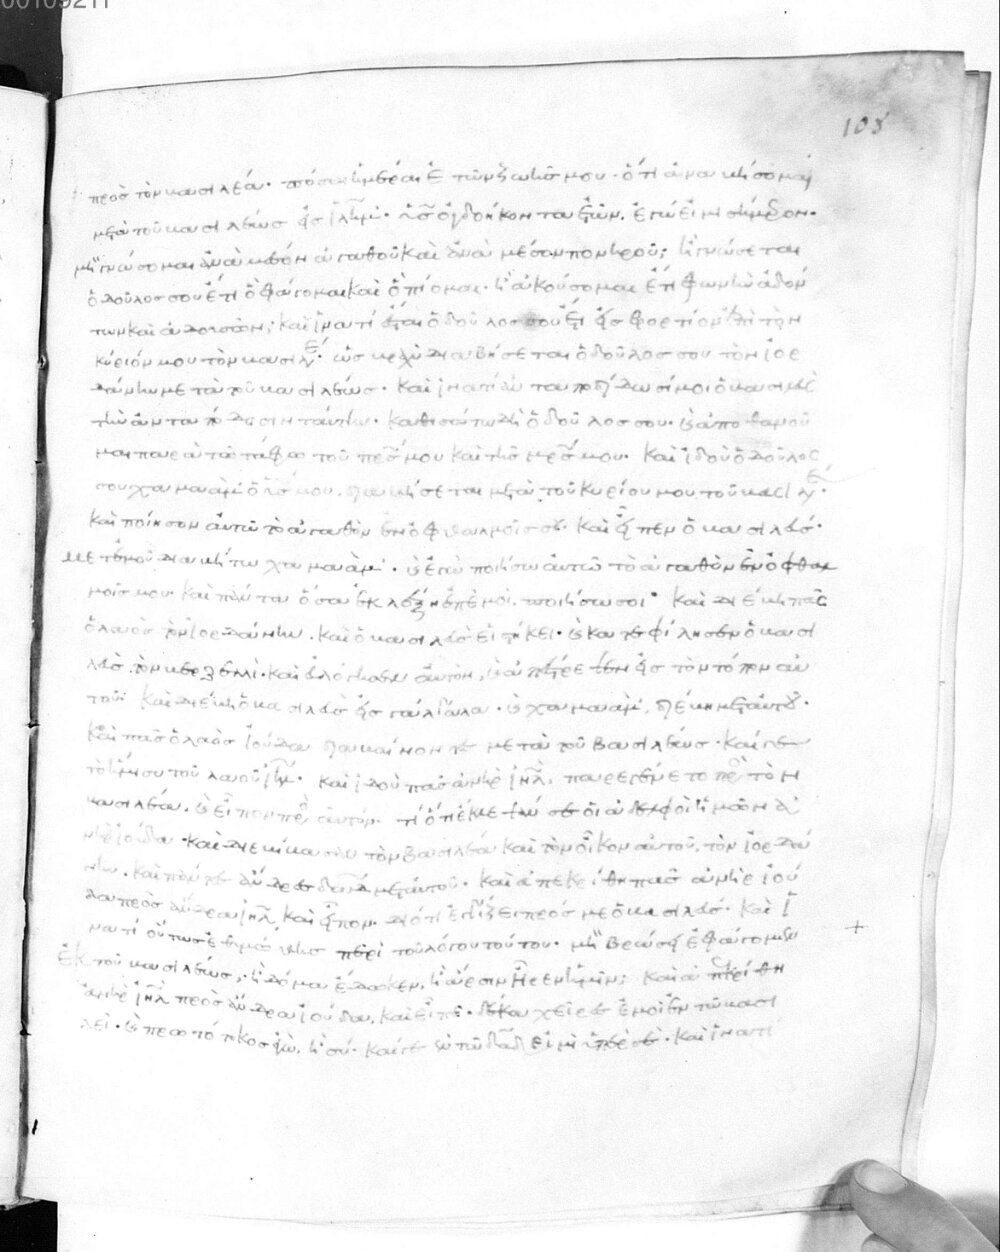 00109211
103
πρὸς τὸν βασιλέα· πόσαι ἡμέραι ἐτῶν ζωῆς μου· ὅτι ἀναβήσομαι
μετὰ τοῦ βασιλέως εἰς ἰλῆμ· υἱὸς ὀγδοήκοντα ἐτῶν ἐγώ εἰμι σήμερον·
μὴ γνώσομαι ἀνὰ μέσον ἀγαθοῦ καὶ ἀνὰ μέσον πονηροῦ; ἢ γνώσεται
ὁ δοῦλος σου ἔτι ὃ φάγομαι καὶ ὃ πίομαι· ἢ ἀκούσομαι ἔτι φωνὴν ἀδόν
των καὶ ἀδουσῶν; καὶ ἱνατί ἔσται ὁ δοῦλος σου ἔτι εἰς φορτίον ἐπὶ τὸν
κύριόν μου τὸν βασιλέ· ὡς βραχὺ διαβήσεται ὁ δοῦλος σου τὸν ἰορ
δάνην μετὰ τοῦ βασιλέως· καὶ ἱνατί ἀνταποδίδωσί μοι ὁ βασιλεὺς
τὴν ἀνταπόδοσιν ταύτην· καθισάτω δὴ ὁ δοῦλος σου· καὶ ἀποθανοῦ
μαι παρὰ τῶ τάφω τοῦ πρς μου καὶ τῆς μρς μου· καὶ ἰδοὺ ὁ δοῦλός
σου χαμαὰμ ὁ υἱός μου, διαβήσεται μετὰ τοῦ κυρίου μου τοῦ βασιλέ·
καὶ ποίησον αὐτῶ τὸ ἀγαθὸν ἐν ὀφθαλμοῖς σου· καὶ εἶπεν ὁ βασιλεύς·
μετ' ἐμοῦ διαβήτω χαμαὰμ· καὶ ἐγὼ ποιήσω αὐτῶ τὸ ἀγαθὸν ἐν ὀφθαλ
μοῖς μου· καὶ πάντα ὅσα ἐκλέξη ἐπ' ἐμοί, ποιήσω σοι· καὶ διέβη πᾶς
ὁ λαὸς τὸν ἰορδάνην, καὶ ὁ βασιλεὺς εἱστήκει· καὶ κατεφίλησεν ὁ βασι
λεὺς τὸν βερζελλί· καὶ εὐλόγησεν αὐτόν, καὶ ἀπέστρεψεν εἰς τὸν τόπον αὐ
τοῦ· καὶ διέβη ὁ βασιλεὺς εἰς γάλγαλα· καὶ χαμαὰμ, διέβη μετ' αὐτοῦ·
καὶ πᾶς ὁ λαὸς ἰούδα διαβαίνοντες μετὰ τοῦ βασιλέως· καί γε
τὸ ἥμισυ τοῦ λαοῦ ἰηλ· καὶ ἰδοὺ πᾶς ἀνὴρ ἰηλ, παρεγένετο πρὸς τὸν
βασιλέα, καὶ εἶπον πρὸς αὐτόν· τί ὅτι ἔκλεψάν σε οἱ ἀδελφοὶ ἡμῶν ἀ
νὴρ ἰούδα· καὶ διεβίβασαν τὸν βασιλέα καὶ τὸν οἶκον αὐτοῦ, τὸν ἰορδά
νην, καὶ πάντες ἄνδρες δαδ μετ' αὐτοῦ· καὶ ἀπεκρίθη πᾶς ἀνὴρ ἰού
δα πρὸς ἄνδρα ἰηλ, καὶ εἶπον· διότι ἐγγίζει πρός με ὁ βασιλεύς· καὶ ἱ
νατί οὕτως ἐθυμώθης περὶ τοῦ λόγου τούτου· μὴ βρώσει ἐφάγομεν
ἐκ τοῦ βασιλέως, ἢ δόμα ἔδωκεν, ἢ ἄρσιν ἦρεν ἡμῖν; καὶ ἀπεκρίθη
ἀνὴρ ἰηλ πρὸς ἄνδρα ἰούδα, καὶ εἶπε· δέκα χεῖρες ἐμοὶ ἐν τῶ βασι
λεῖ· καὶ πρωτότοκος ἐγὼ, ἢ σύ· καί γε ἐν τῶ δαδ εἰμὶ ὑπὲρ σε· καὶ ἱνατί